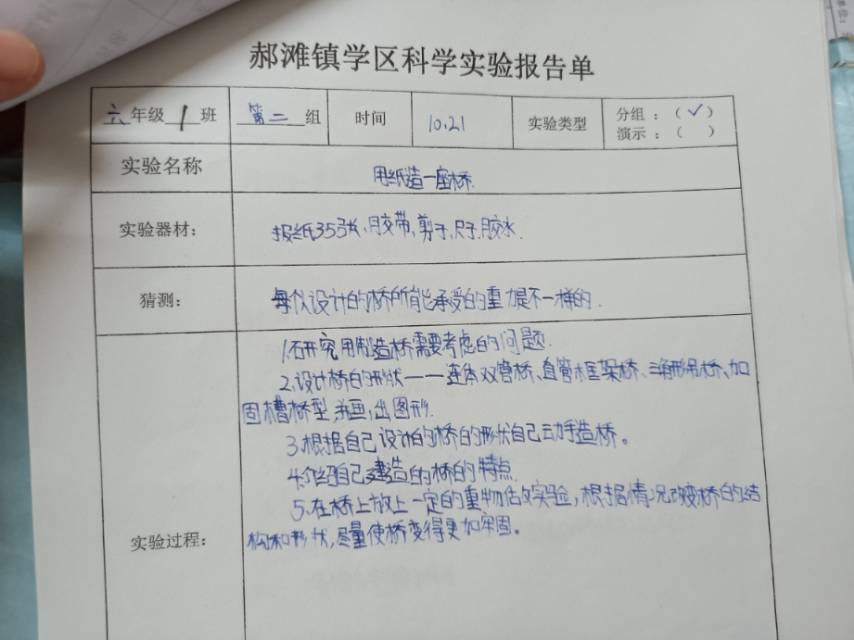 郝滩镇学区科学实验报告单
六年级 1 班 第二组 时间 10.21 实验类型 分组：（✓）
演示：（ ）
实验名称 用纸造一座桥
实验器材： 报纸35张、胶带,剪子,尺子.胶水.
猜测： 每个设计的桥所能承受的重力是不一样的.
1.研究用制造桥需要考虑的问题.
2.设计桥的形状——连体双管桥、直管框架桥、三角形吊桥、加
固槽桥型,并画出图形.
3.根据自己设计的桥的形状自己动手造桥。
4.介绍自己建造的桥的特点.
5.在桥上放上一定的重物做实验,根据情况改变桥的结
构和形状,尽量使桥变得更加牢固。
实验过程：